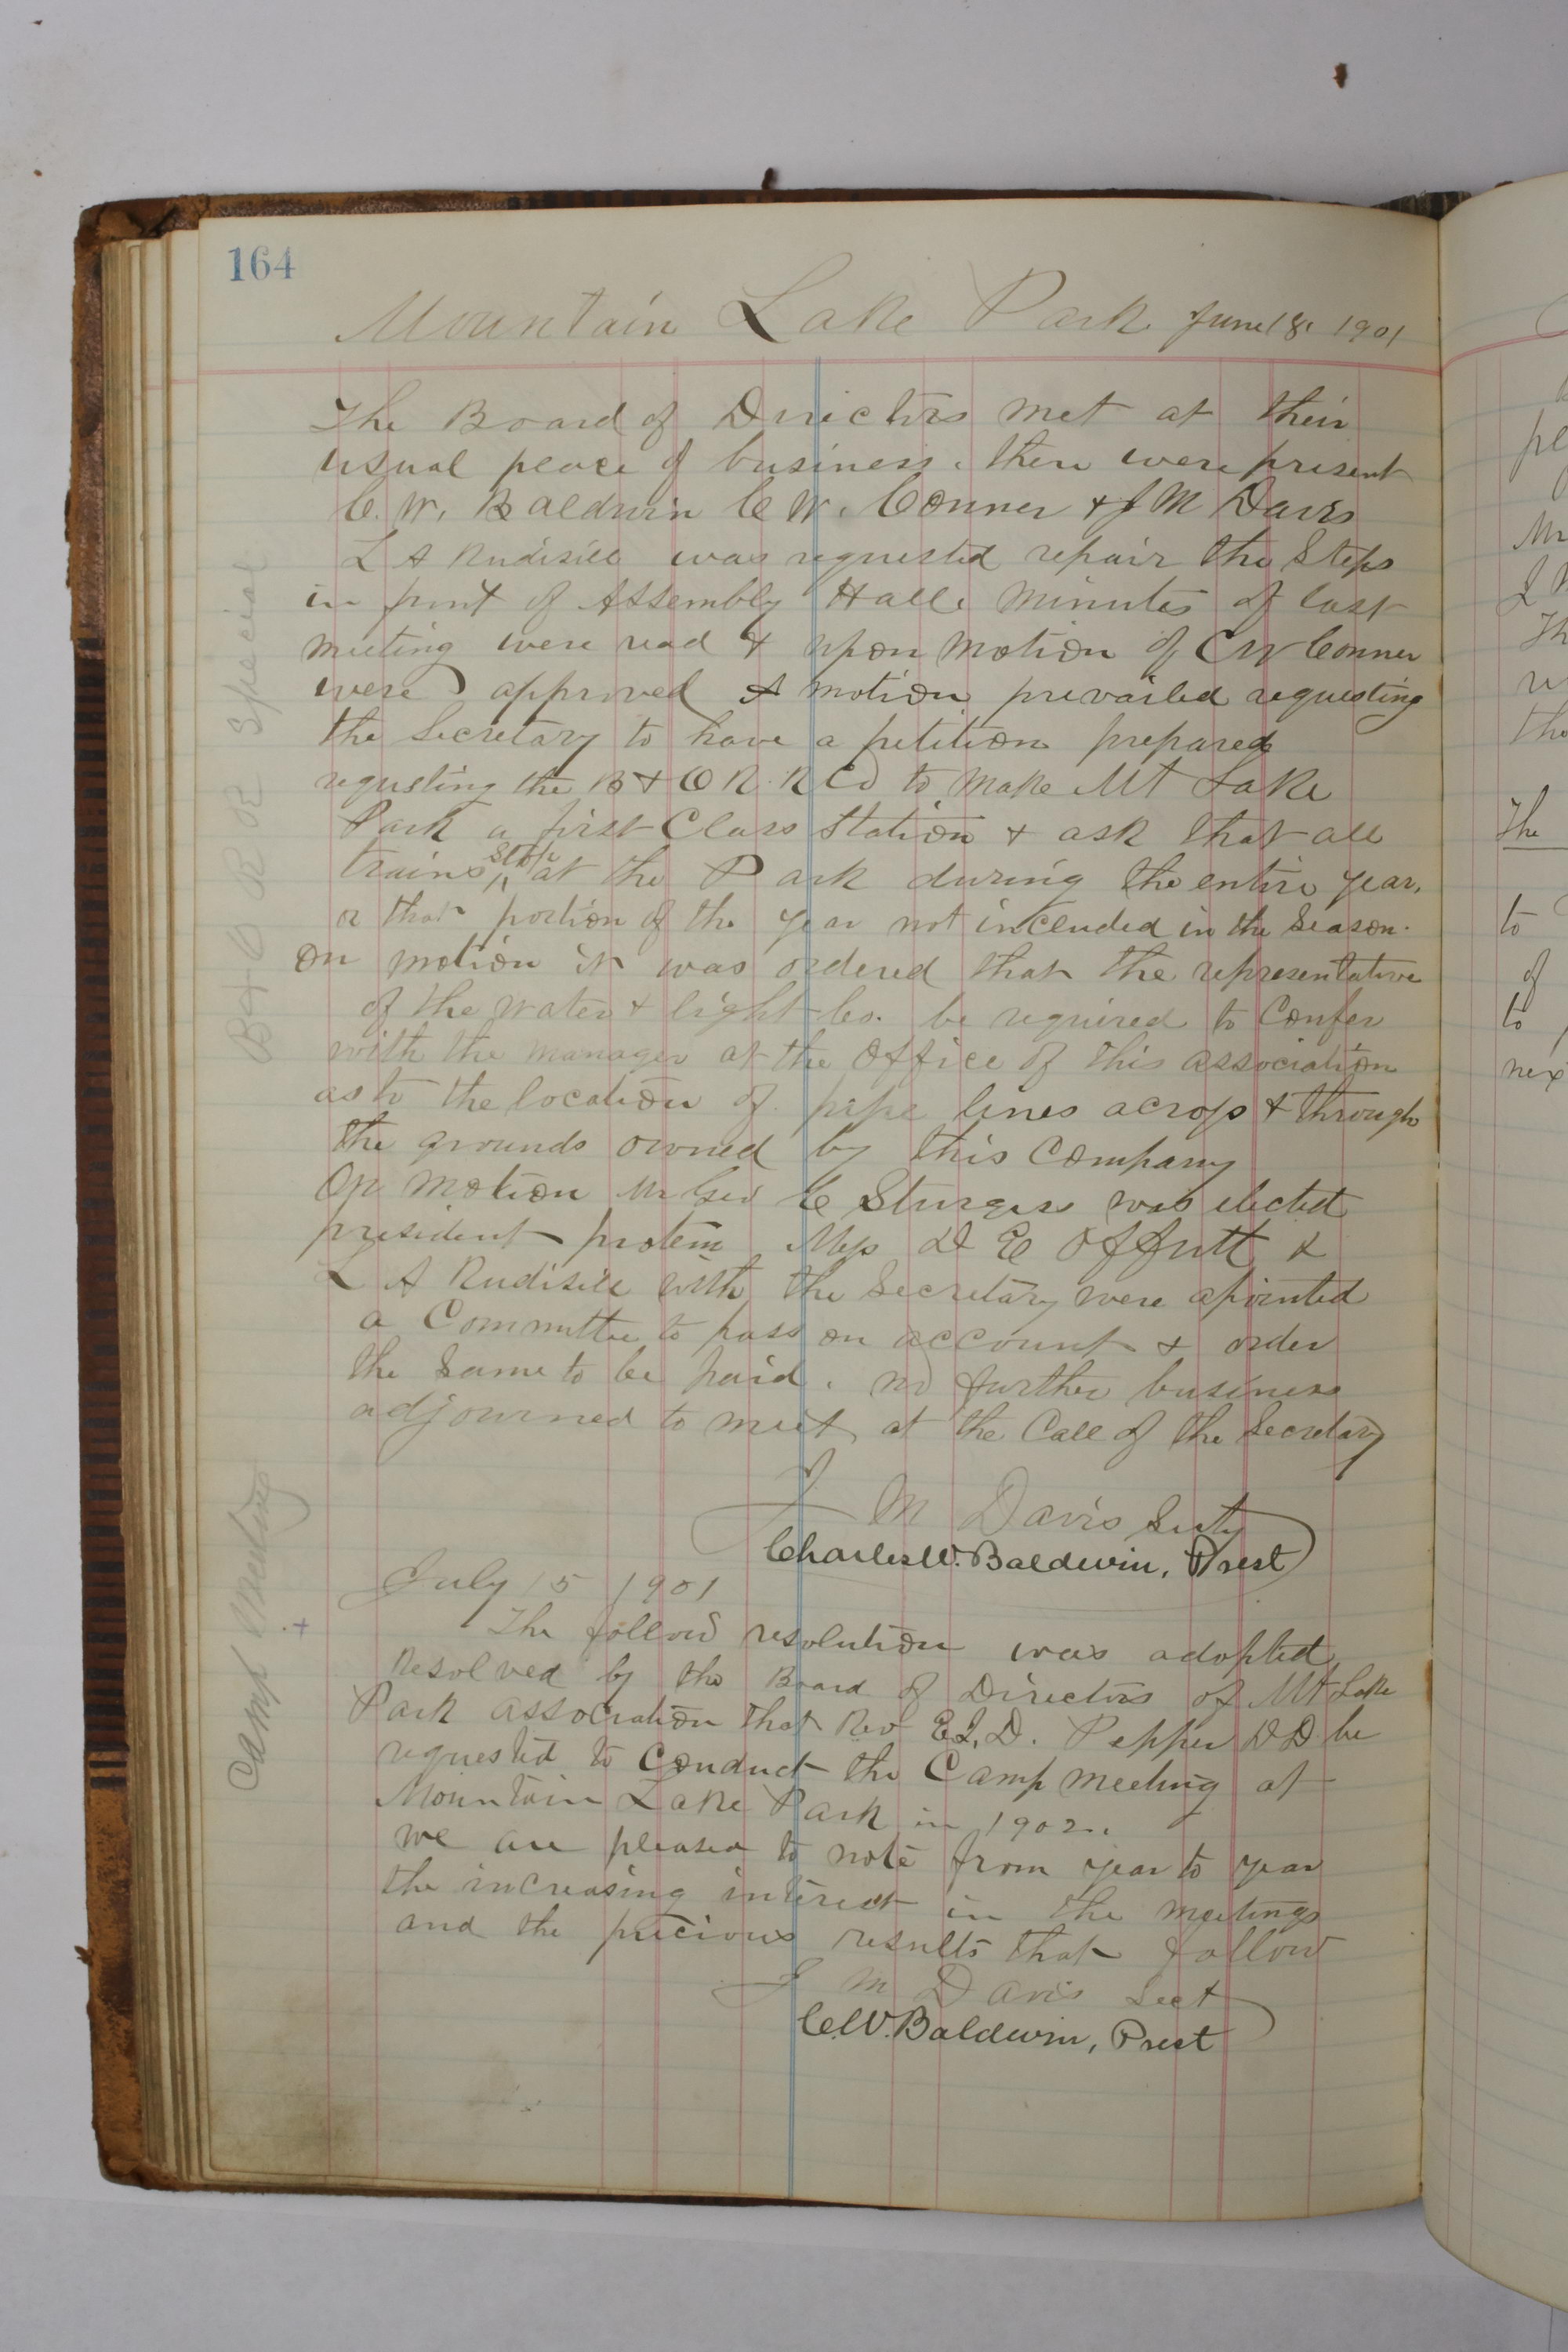 164
Mountain Lake Park June 18 1901
The Board of Directors met at their
usual place of business. there were present
C. W. Baldwin C W. Conner & J M Davis
L A Rudisill was requested repair the Steps
in front of Assembly Hall. Minutes of last
meeting were read & upon motion of CW Conner
were approved A motion prevailed requesting
the Secretary to have a petition prepared
requsting the B & O R. R Co to make Mt Lake
Park a first Class Station & ask that all
trains stop at the Park during the entire year,
or that portion of the year not included in the Season.
On motion it was ordered that the representative
of the water & light Co. be required to Confer
with the manager at the Office of this association
as to the location of pipe lines across & through
the grounds owned by this Company
On motion Mr Geo C Sturgiss was elected
president protem Mess D E Offutt &
L A Rudisill with the Secretary were apointed
a Committee to pass on account & order
the Same to be paid. no further business
adjourned to meet at the Call of the Secretary
J M Davis Secty
Charles W. Baldwin, Prest
July 15 1901
The follow resolution was adopted
Resolved by the Board of Directors of Mt Lake
Park association that Rev E.I.D. Pepper D D be
requested to Conduct the Camp meeting at
Mountain Lake Park in 1902.
we are pleased to note from year to year
the increasing interest in the meetings
and the precious results that follow
J M Davis Sect
C.W. Baldwin, Prest
B & O R R Special
Camp Meeting